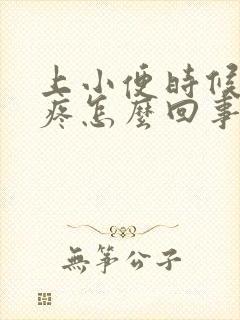 上小便時候
疼怎麼回事
無筝公子